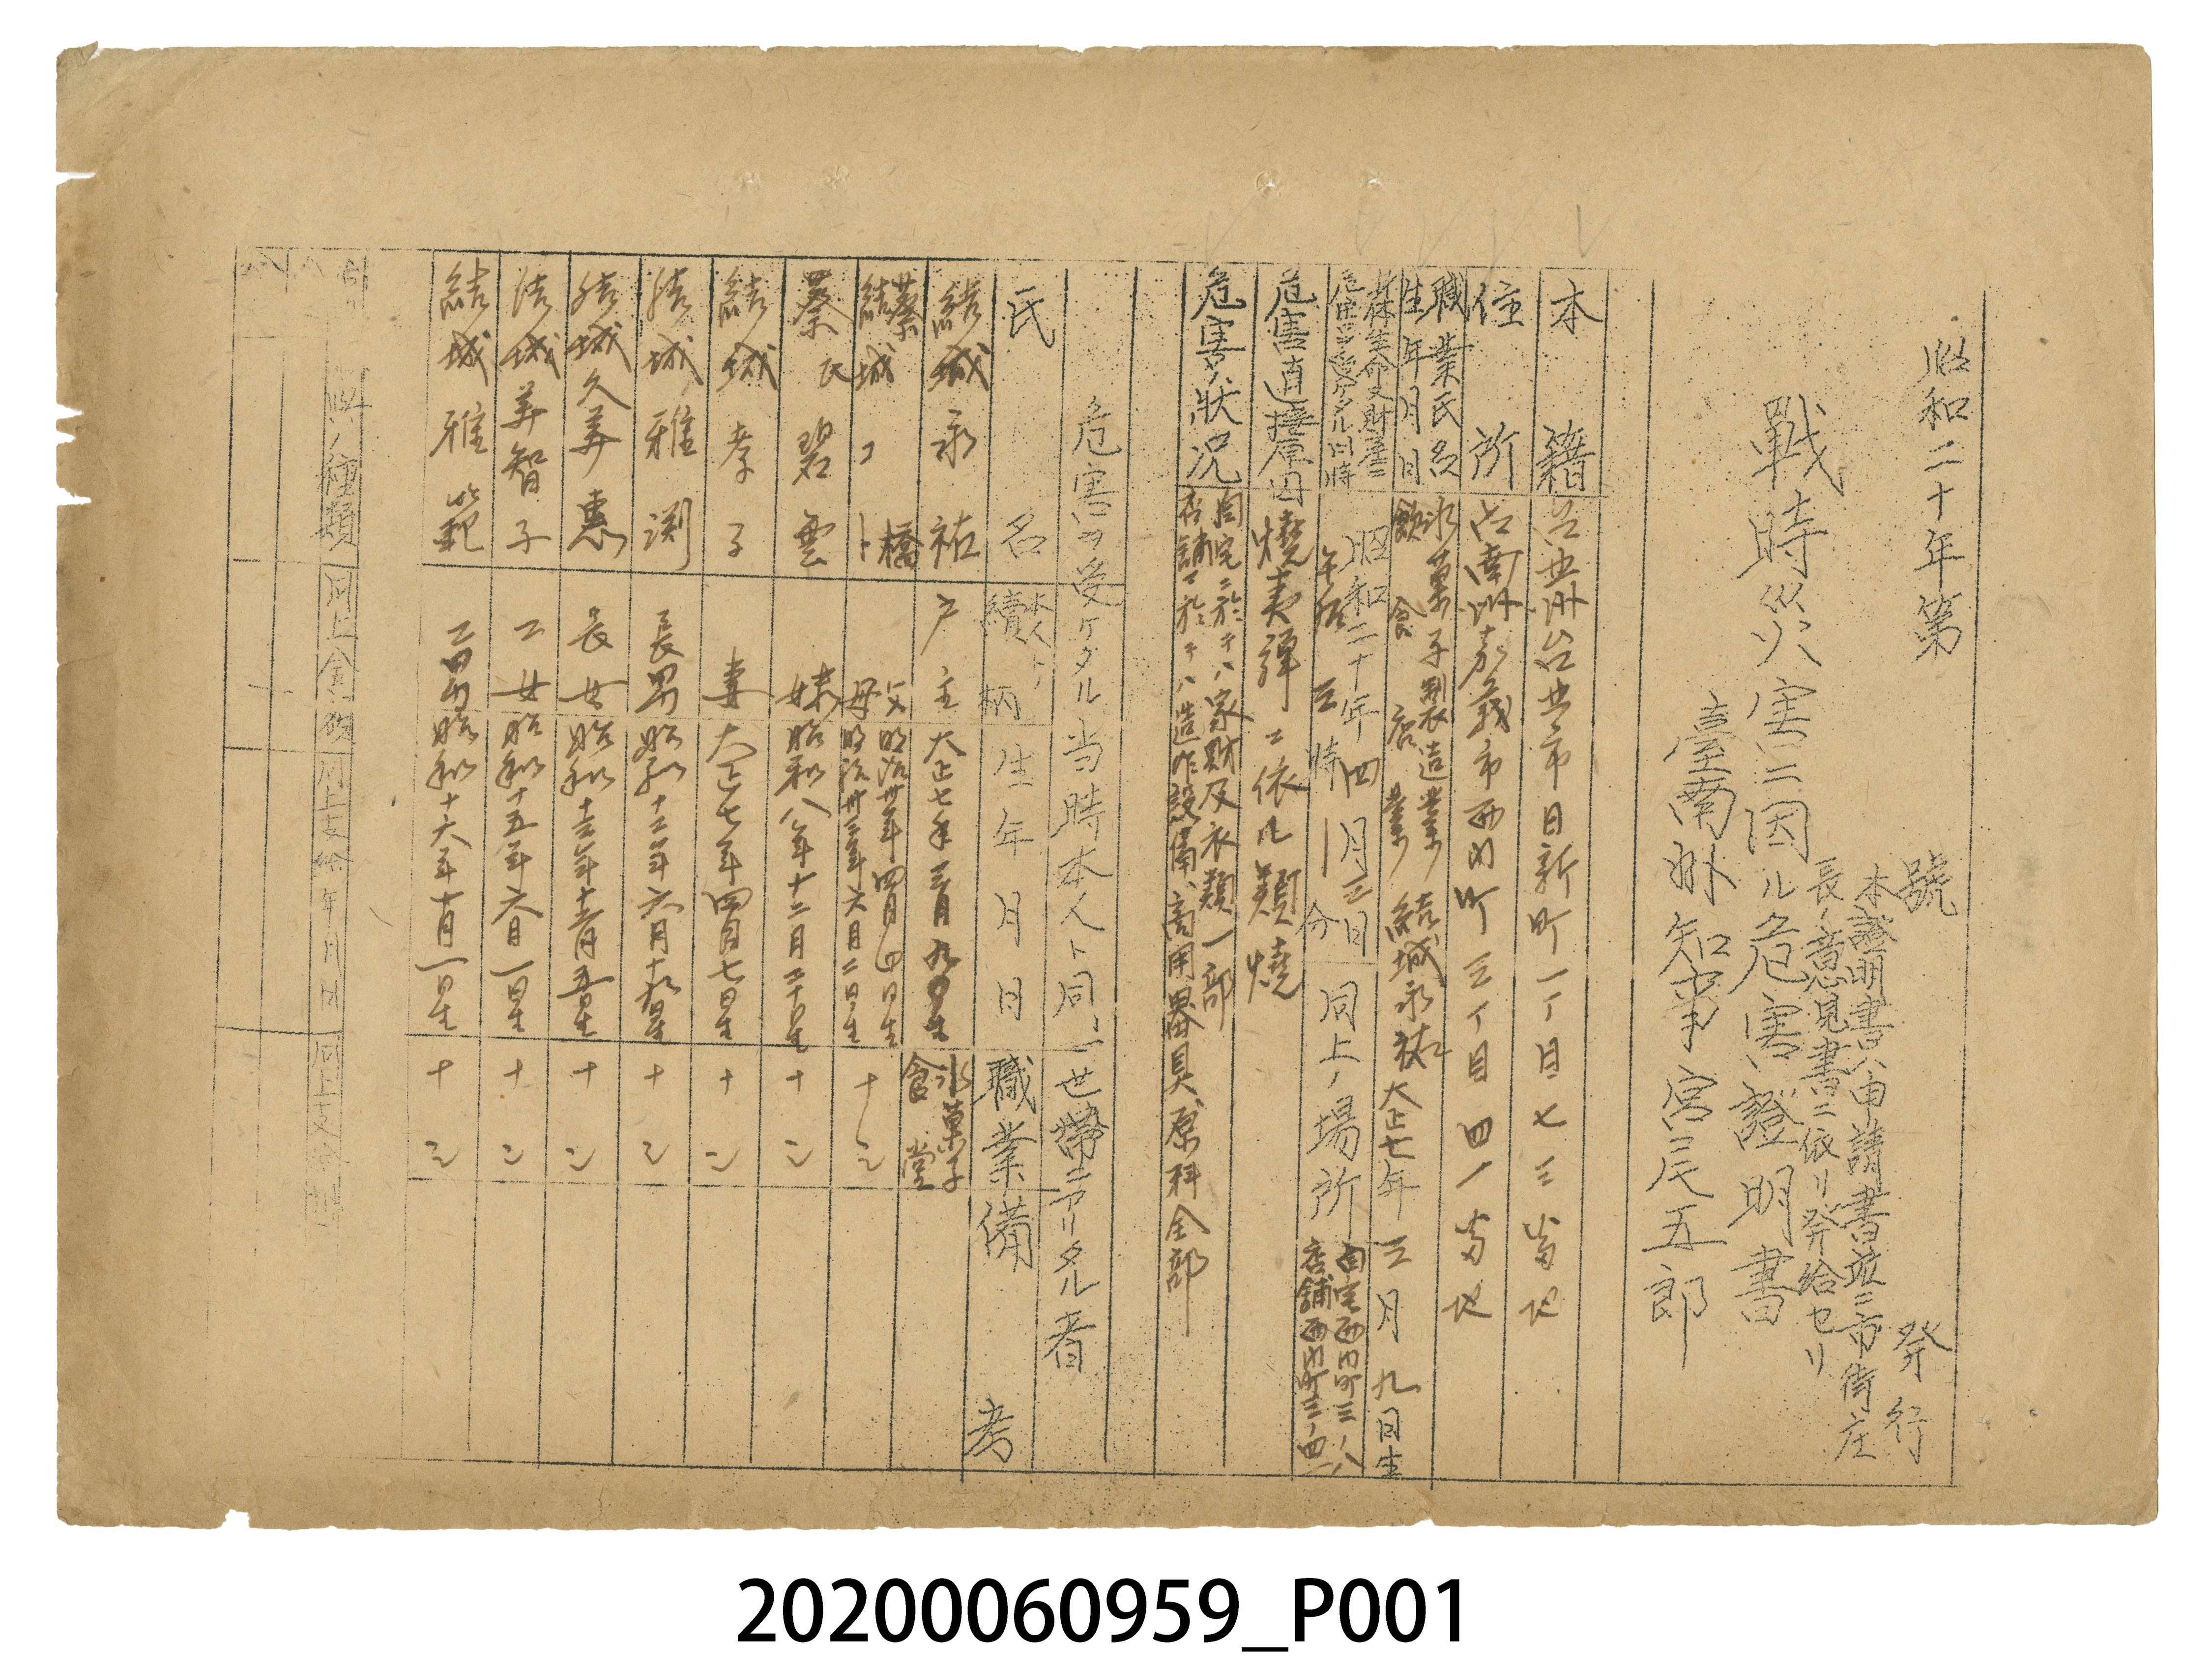 昭和二十年第　　號　　発行
本證明書ハ申請書並ニ市街庄
長ノ意見書ニ依リ発給セリ
戰時災害ニ因ル危害證明書
臺南州知事宮尾五郎
本籍　台中州台中市日新町一丁目七三番地
住所　台南州嘉義市西門町三丁目四一番地
職業氏名　氷菓子製造業　結城永祐
生年月日　飲食店業　大正七年三月九日生
身体生命又財産ニ
危害ヲ受ケタル日時
昭和二十年四月三日
午后三時　分
同上ノ場所
自宅西門町三ノ八
店舖西門町三ノ四一
危害直接原因　燒夷彈ニ依ル類燒
危害ノ狀况　自宅ニ於テハ家財及衣類一部
店舖ニ於テハ造作設備、商用器具原料全部
危害ヲ受ケタル当時本人ト同一世帶ニアリタル者
氏名　本人トノ續柄　生年月日　職業　備考
結城永祐　戸主　大正七年三月九日生　氷菓子
食堂
蔡　橋　父　明治卅年四月四日生
結城　母　明治卅三年六月二日生
蔡氏碧雲　妹　昭和八年十二月二十日生　ナシ
結城孝子　妻　大正七年四月七日生　ナシ
結城雅渕　長男　昭和十二年六月十九日生　ナシ
結城久美惠　長女　昭和十三年十二月五日生　ナシ
結城美智子　二女　昭和十五年六月一日生　ナシ
結城雅範　二男　昭和十六年十月一日生　ナシ
ノ種類　同上金額　同上支給年月日　同上支給
20200060959_P001